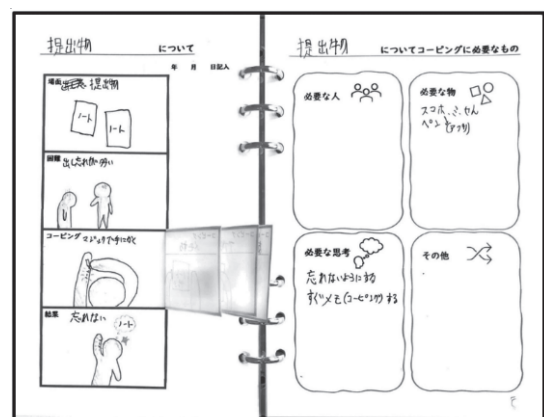 提出物 について
年 月 日記入
場面 提出物
ノート ノート
困難 出し忘れが多い
コーピング マジックで手にかく
結果 忘れない
ノート
提出物 についてコーピングに必要なもの
必要な人
必要な物
スマホ
ペン (アプリ)
必要な思考
忘れないようにする
すぐメモ(コーピング)する
その他